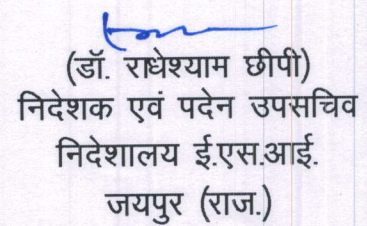 (डॉ. राधेश्याम छीपी)
निदेशक एवं पदेन उपसचिव
निदेशालय ई.एस.आई.
जयपुर (राज.)